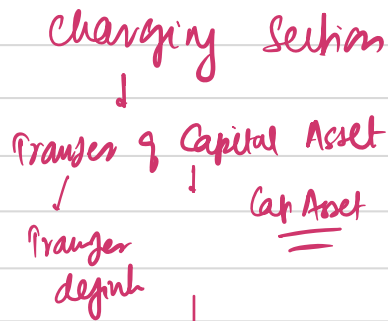 Charging Section
Transfer of Capital Asset
Cap Asset
Transfer
definh